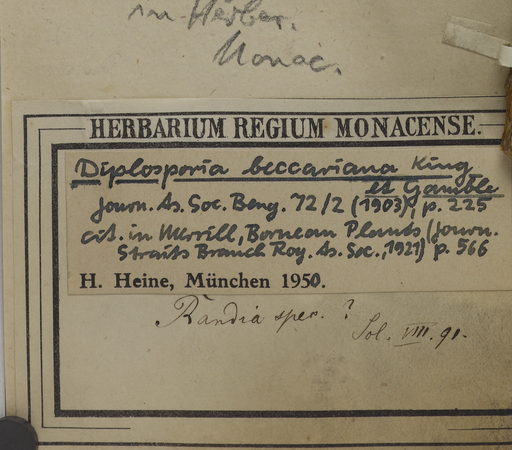 in Herbar.
Monac.
HERBARIUM REGIUM MONACENSE.
Diplosporia beccariana King
et Gamble
Journ. As. Soc. Beng. 72/2 (1903), p. 225
cit. in Merrill, Bornean Plants (Journ.
Straits Branch Roy. As. Soc., 1921) p. 566
H. Heine, München 1950.
Randia spec. ?
Sol. VIII. 91.